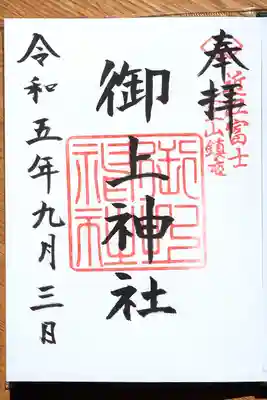 奉拝
近江富士
山鎮座
御上神社
御上
神社
令和五年九月三日